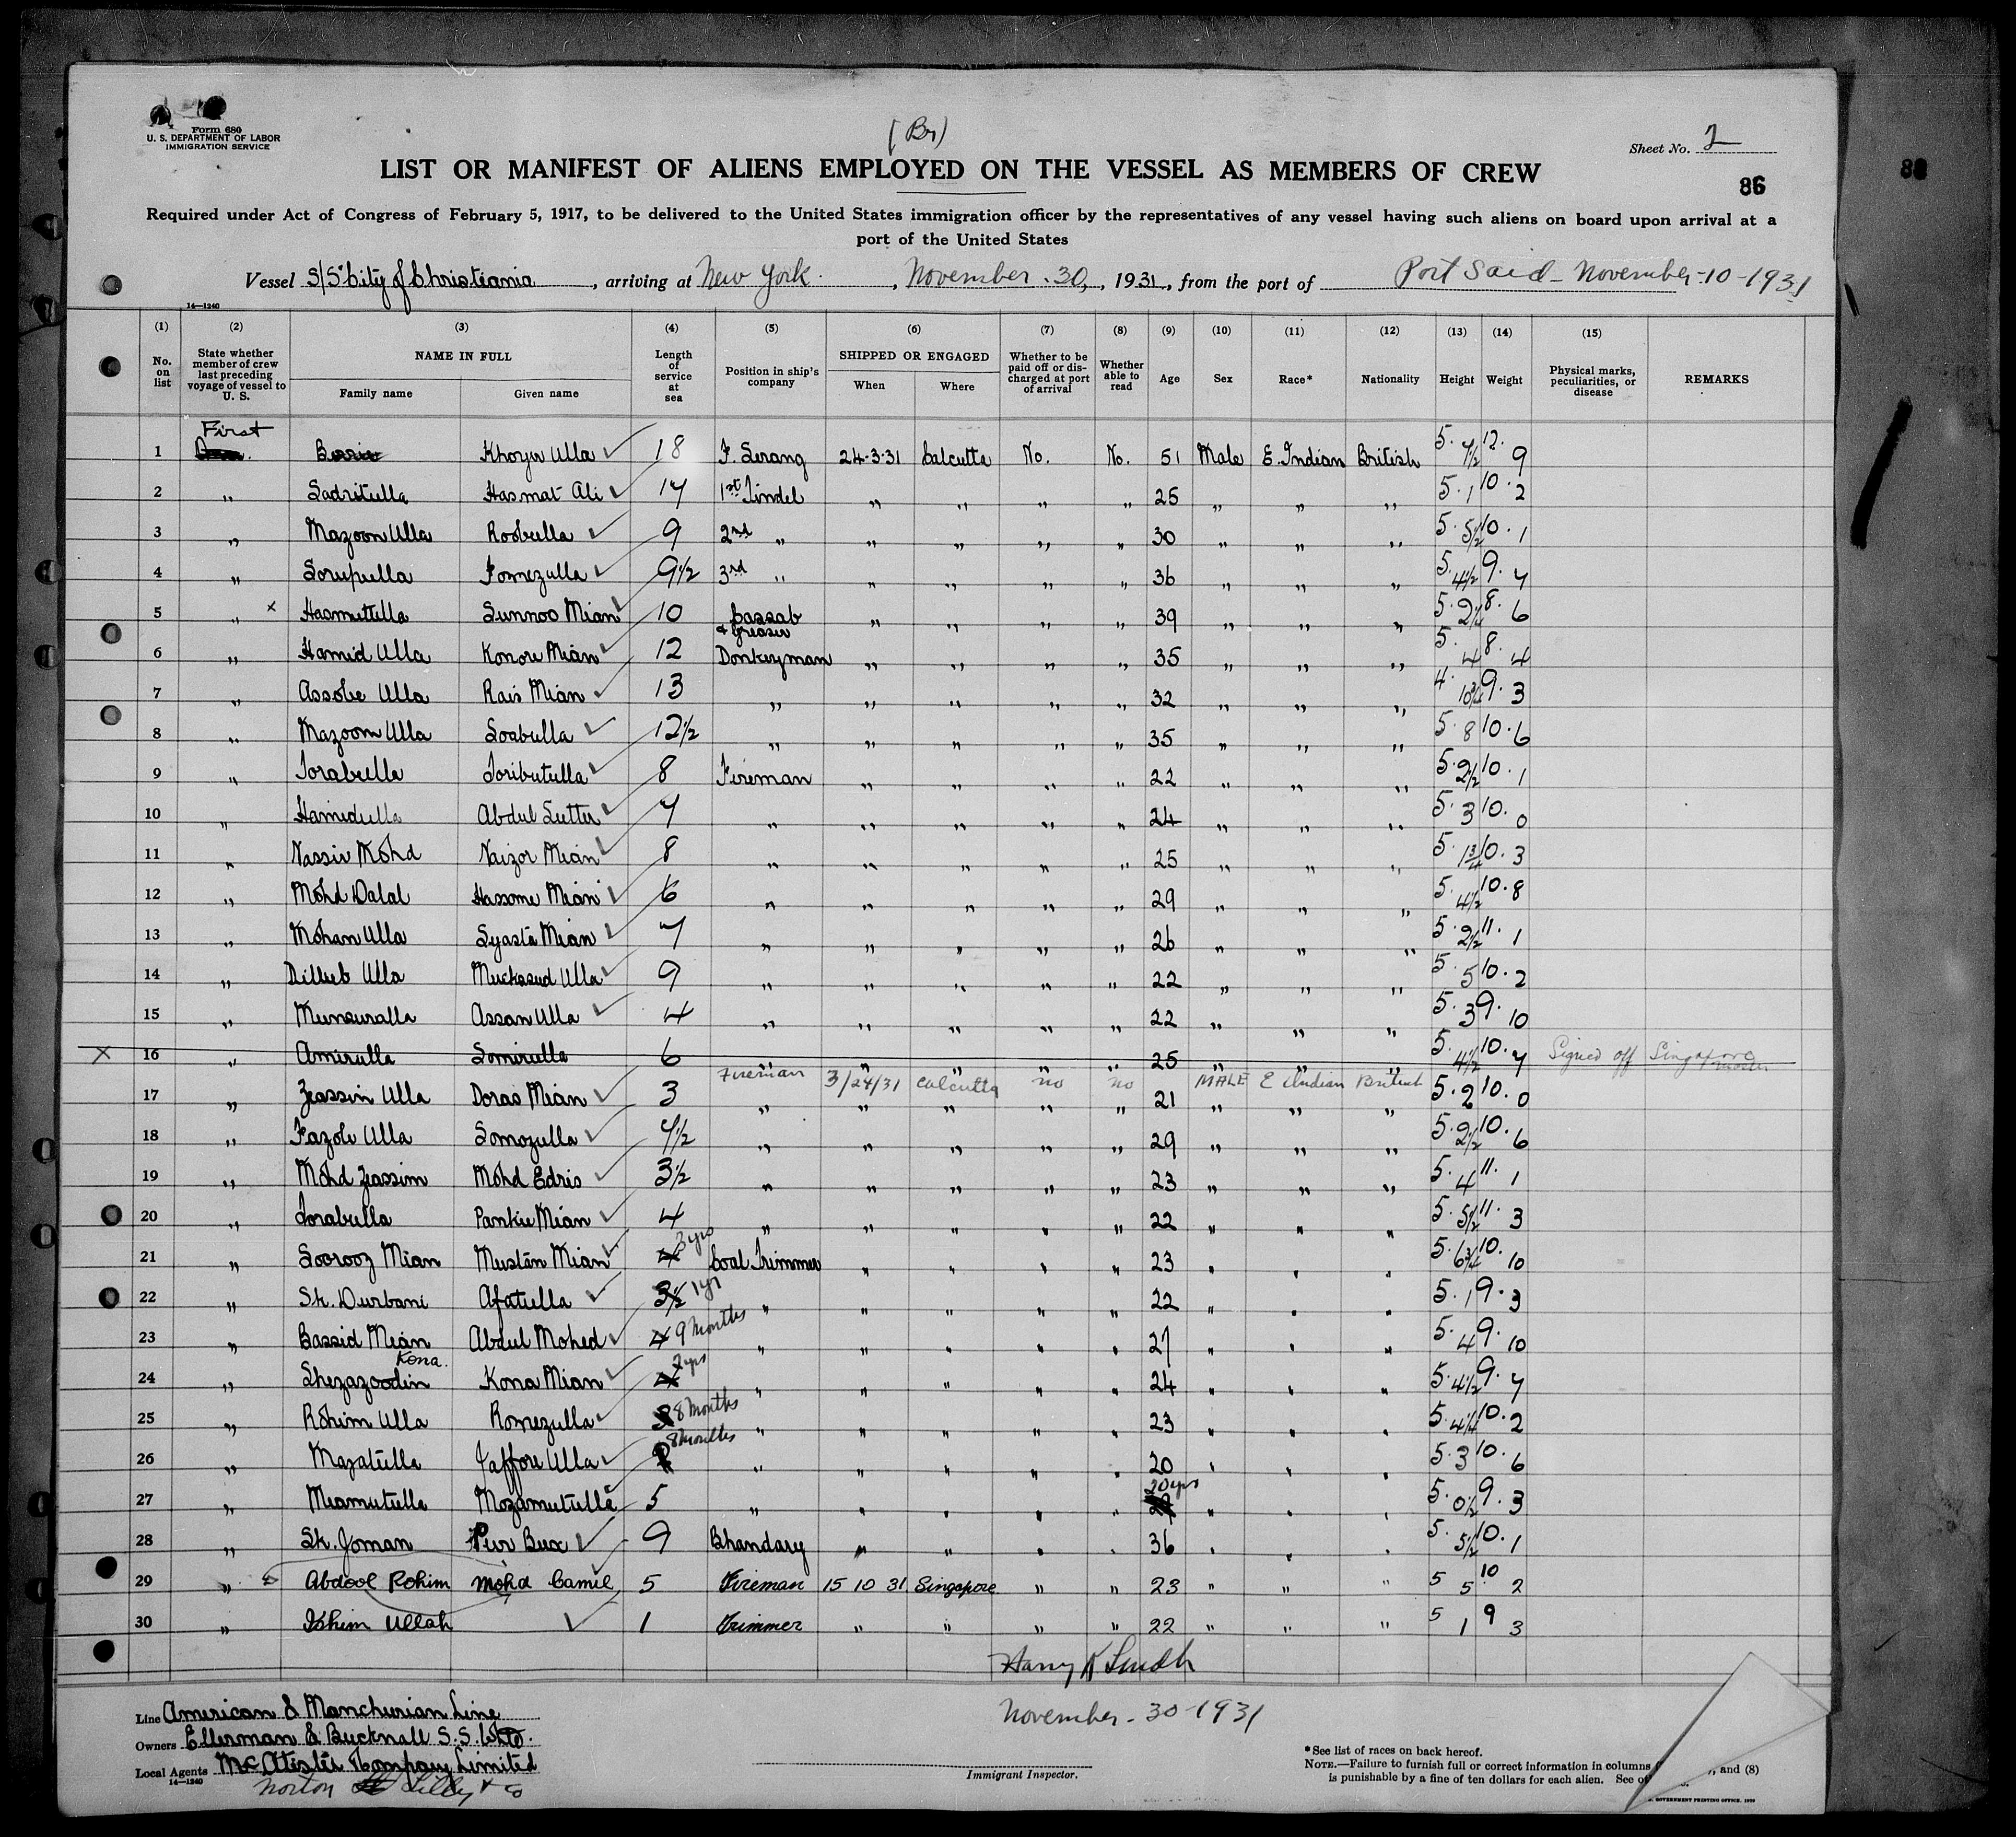 Form 680
U. S. DEPARTMENT OF LABOR
IMMIGRATION SERVICE
(Br)
Sheet No. 2
LIST OR MANIFEST OF ALIENS EMPLOYED ON THE VESSEL AS MEMBERS OF CREW
86
Required under Act of Congress of February 5, 1917, to be delivered to the United States immigration officer by the representatives of any vessel having such aliens on board upon arrival at a
port of the United States
Vessel S/S "City of Christiania, arriving at New York, November 30, 1931, from the port of Port Said - November-10-1931
14—1240
(1) (2) (3) (4) (5) (6) (7) (8) (9) (10) (11) (12) (13) (14) (15)
No. on list State whether member of crew last preceding voyage of vessel to U. S. NAME IN FULL Family name Given name Length of service at sea Position in ship's company SHIPPED OR ENGAGED When Where Whether to be paid off or discharged at port of arrival Whether able to read Age Sex Race* Nationality Height Weight Physical marks, peculiarities, or disease REMARKS
First
1 Khoyer Ulla 18 F. Serang 24-3-31 Calcutta No. No. 51 Male E. Indian British 5. 7½ 12. 9
2 " Sadritulla Hasmat Ali 17 1st Tindel " " " " 25 " " " 5. 1 10. 2
3 " Mazoom Ulla Roobulla 9 2nd " " " " " 30 " " " 5. 5½ 10. 1
4 " Sorupulla Fomezulla 9½ 3rd " " " " " 36 " " " 5. 4½ 9. 7
5 " x Hasmutulla Sunnoo Mian 10 Cassab & Greaser " " " " 39 " " " 5. 2¼ 8. 6
6 " Hamid Ulla Konore Mian 12 Donkeyman " " " " 35 " " " 5. 4 8. 4
7 " Assobe Ulla Rais Mian 13 " " " " " 32 " " " 4. 10¾ 9. 3
8 " Mazoom Ulla Soabulla 12½ " " " " " 35 " " " 5. 8 10. 6
9 " Torabulla Toributulla 8 Fireman " " " " 22 " " " 5. 2½ 10. 1
10 " Hamidulla Abdul Sutter 7 " " " " " 24 " " " 5. 3 10. 0
11 " Nassir Mohd Naizor Mian 8 " " " " " 25 " " " 5. 1¾ 10. 3
12 " Mohd Dalal Hassome Mian 6 " " " " " 29 " " " 5. 4½ 10. 8
13 " Mohan Ulla Syasta Mian 7 " " " " " 26 " " " 5. 2½ 11. 1
14 " Dillub Ulla Muckasud Ulla 9 " " " " " 22 " " " 5. 5 10. 2
15 " Munsuralla Assan Ulla 4 " " " " " 22 " " " 5. 3 9. 10
X 16 " Amirulla Somirulla 6 " " " " " 25 " " " 5. 4½ 10. 7 Signed off Singapore
Fireman 3/24/31 Calcutta no no MALE E Indian British
17 " Zeassin Ulla Doras Mian 3 " " " " " 21 " " " 5. 2 10. 0
18 " Fazole Ulla Somozulla 7½ " " " " " 29 " " " 5. 2½ 10. 6
19 " Mohd Zeassim Mohd Edris 3½ " " " " " 23 " " " 5. 4 11. 1
20 " Torabulla Pankie Mian 4 " " " " " 22 " " " 5. 5½ 11. 3
21 " Soorooz Mian Mustan Mian 4 3 yrs Coal Trimmer " " " " 23 " " " 5. 6¾ 10. 10
22 " Sk. Durbani Afatulla 3½ 1 yr " " " " " 22 " " " 5. 1 9. 3
23 " Bassid Mian Abdul Mohed 4 9 months " " " " " 27 " " " 5. 4 9. 10
Kona.
24 " Shezazoodin Kona Mian 4 2 yrs " " " " " 24 " " " 5. 4½ 9. 7
25 " Rohim Ulla Romezulla 8 months " " " " " 23 " " " 5. 4¼ 10. 2
26 " Mazatulla Jaffore Ulla 8 months " " " " " 20 " " " 5. 3 10. 6
27 " Miamutulla Mozamutulla 5 " " " " " 20 yrs " " " 5. 0½ 9. 3
28 " Sk. Joman Peer Bux 9 Bhandary " " " " 36 " " " 5. 5½ 10. 1
29 " Abdool Rohim Mohd Camil 5 Fireman 15 10 31 Singapore " " 23 " " " 5 5 10 2
30 " Ullah 1 Trimmer " " " " 22 " " " 5 1 9 3
November - 30 - 1931
Line American & Manchurian Line
Owners Ellerman & Bucknall S.S. Co Ltd.
Local Agents Company Limited
14—1240
Norton Lilly & Co
Immigrant Inspector.
*See list of races on back hereof.
NOTE.—Failure to furnish full or correct information in columns , and (8)
is punishable by a fine of ten dollars for each alien. See
GOVERNMENT PRINTING OFFICE